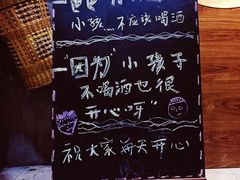 小孩…不应该喝酒
"因为"小孩子
不喝酒也很
开心呀"
祝大家每天开心